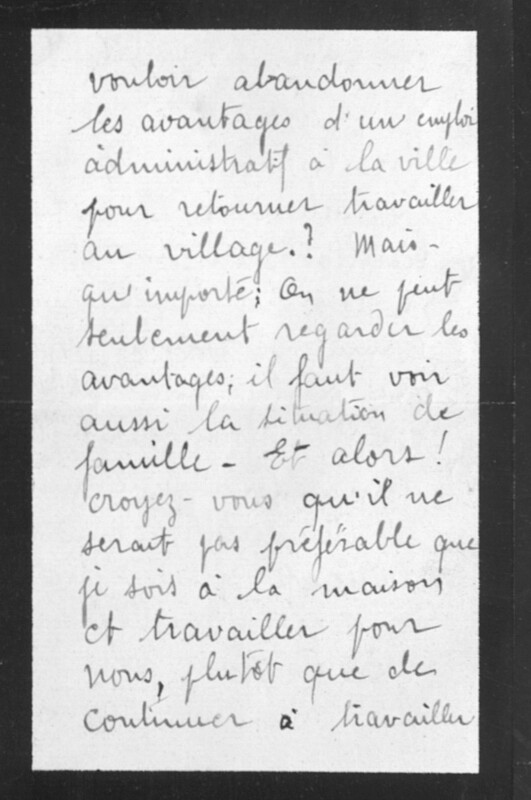 vouloir abandonner
les avantages d'un emploi
administratif à la ville
pour retourner travailler
au village.? Mais-
qu'importe; On ne peut
seulement regarder les
avantages; il faut voir
aussi la situation de
famille - Et alors!
croyez-vous qu'il ne
serait pas préférable que
je sois à la maison
et travailler pour
nous, plutôt que de
continuer à travailler